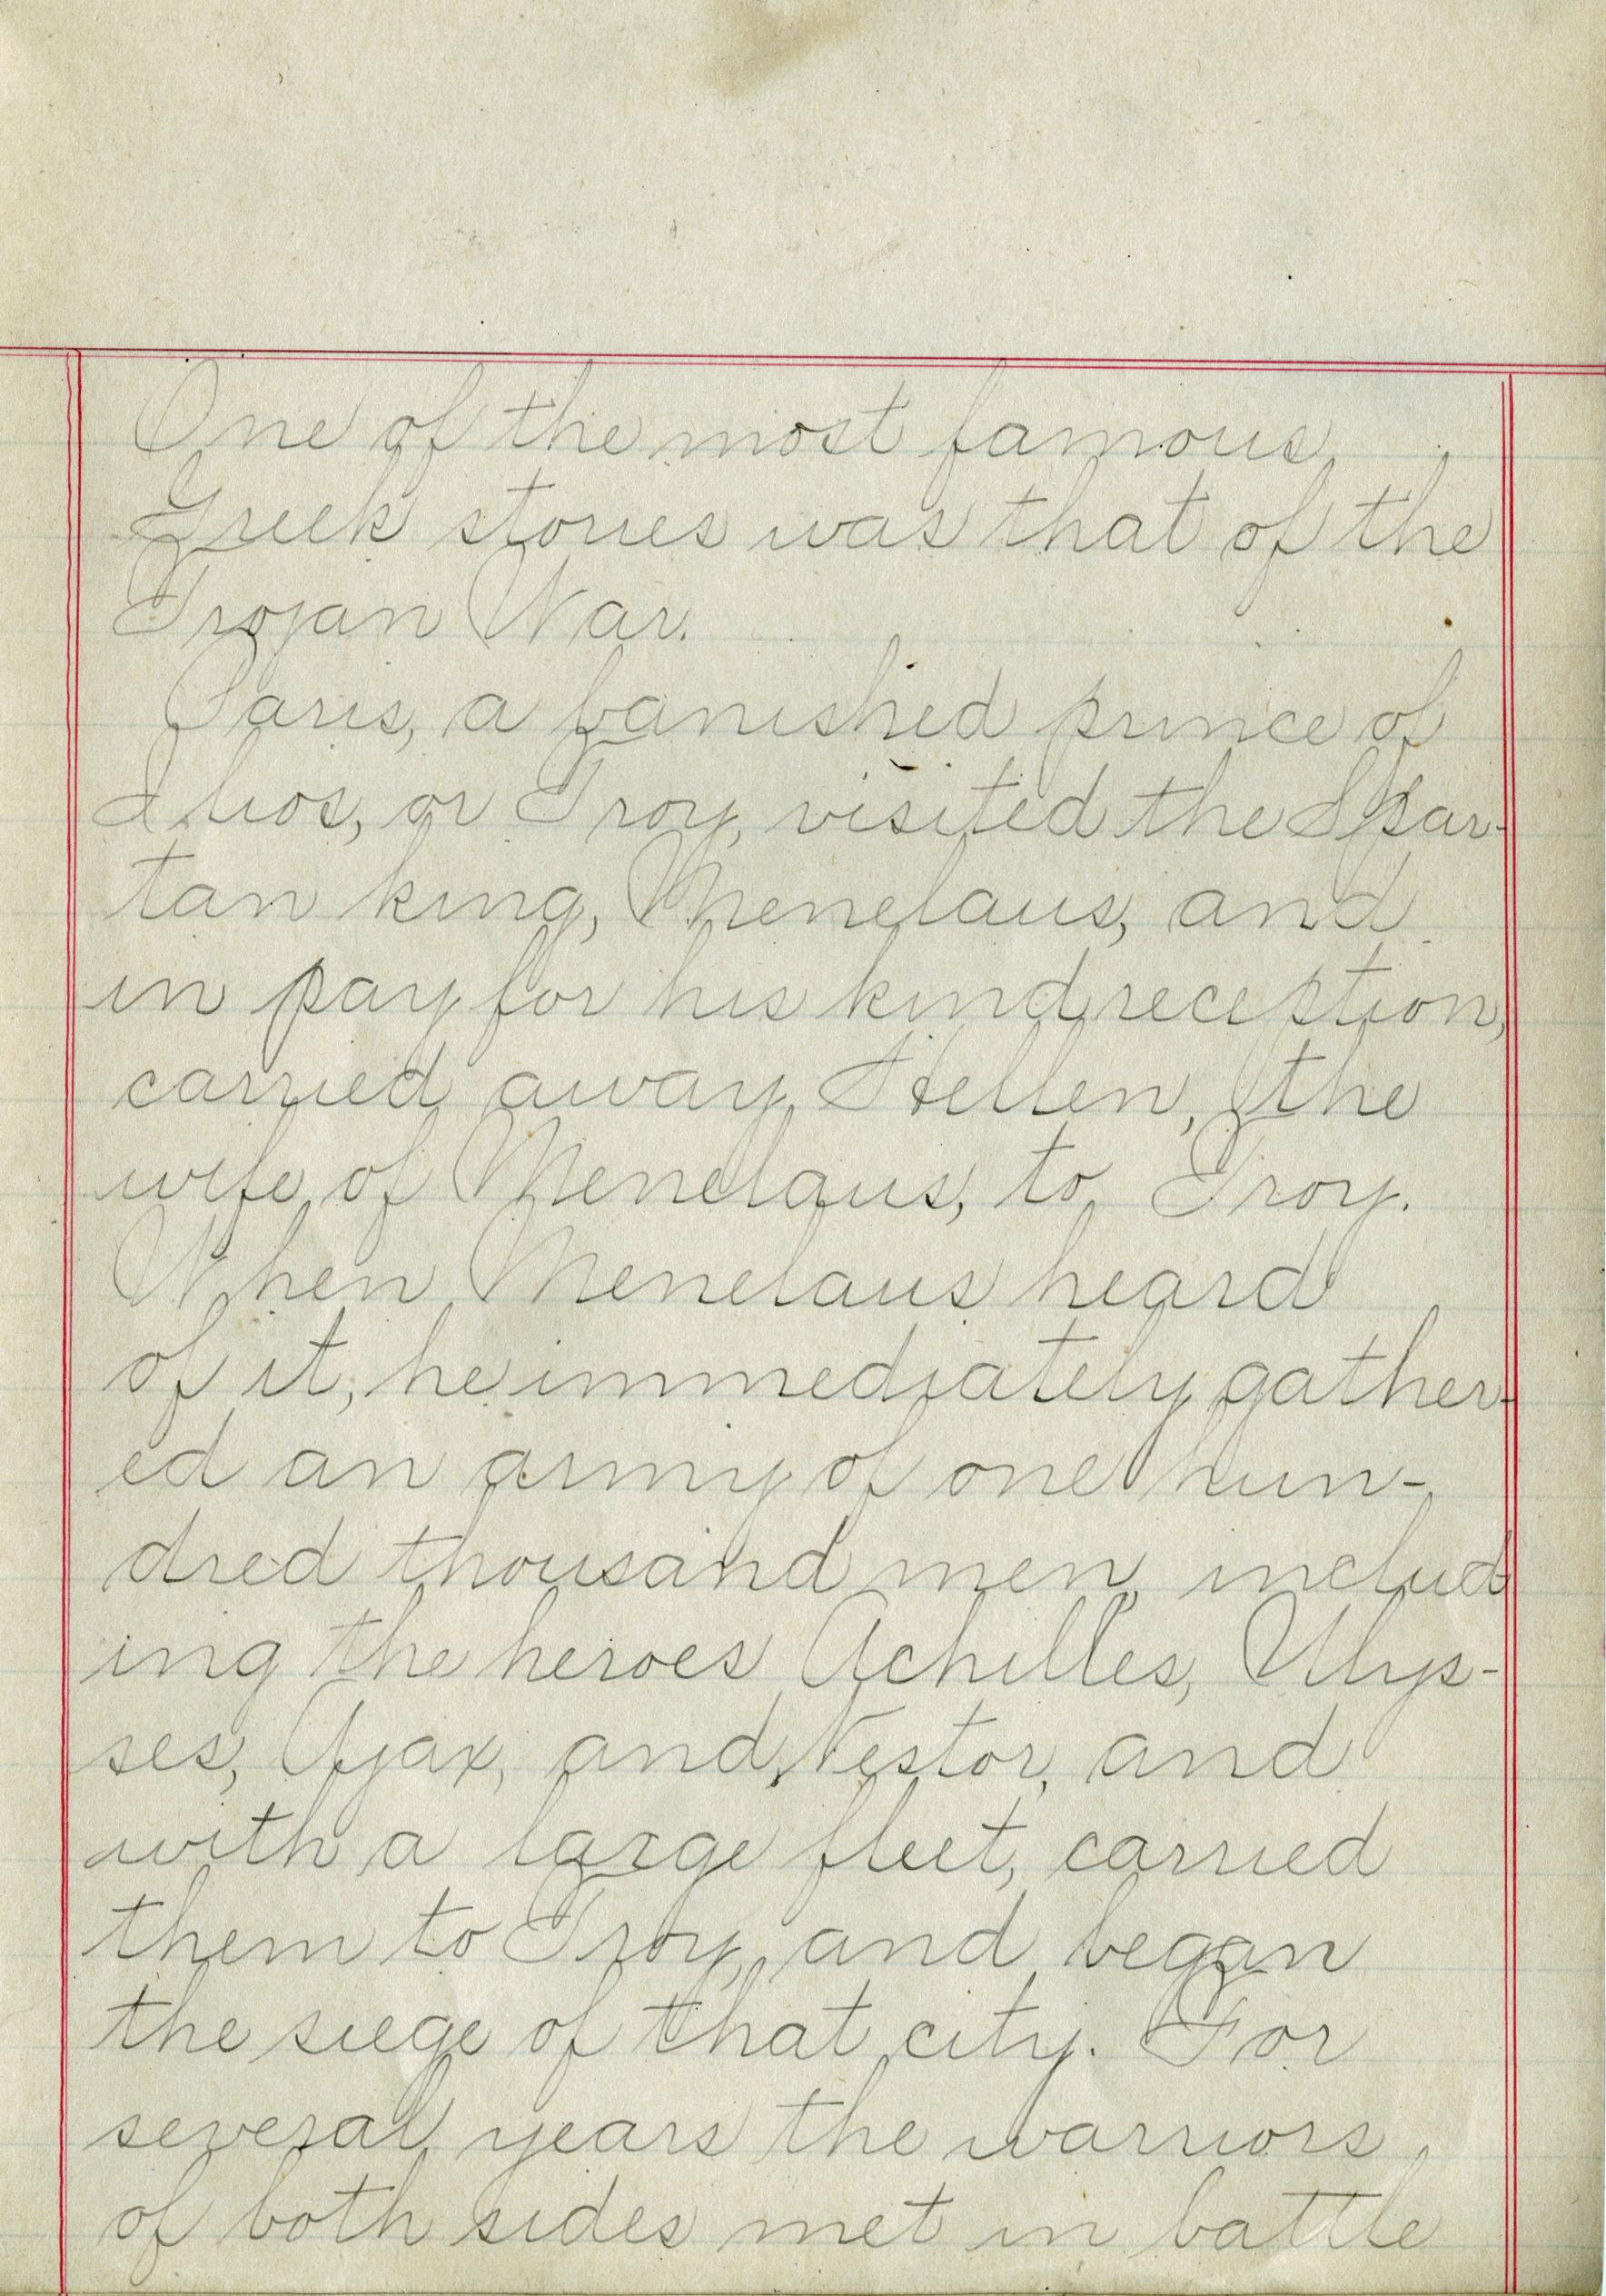 One of the most famous
Greek stories was that of the
Trojan War.
Paris, a banished prince of
Ilios, or Troy, visited the Spar-
tan king, Menelaus, and
in pay for his kind reception,
carried away Hellen, the
wife of Menelaus, to Troy.
When Menelaus heard
of it, he immediately gather-
ed an army of one hun-
dred thousand men, includ-
ing the heroes Achilles, Ulys-
ses, Ajax, and Nestor, and
with a large fleet, carried
them to Troy, and began
the siege of that city. For
several years the warriors
of both sides met in battle